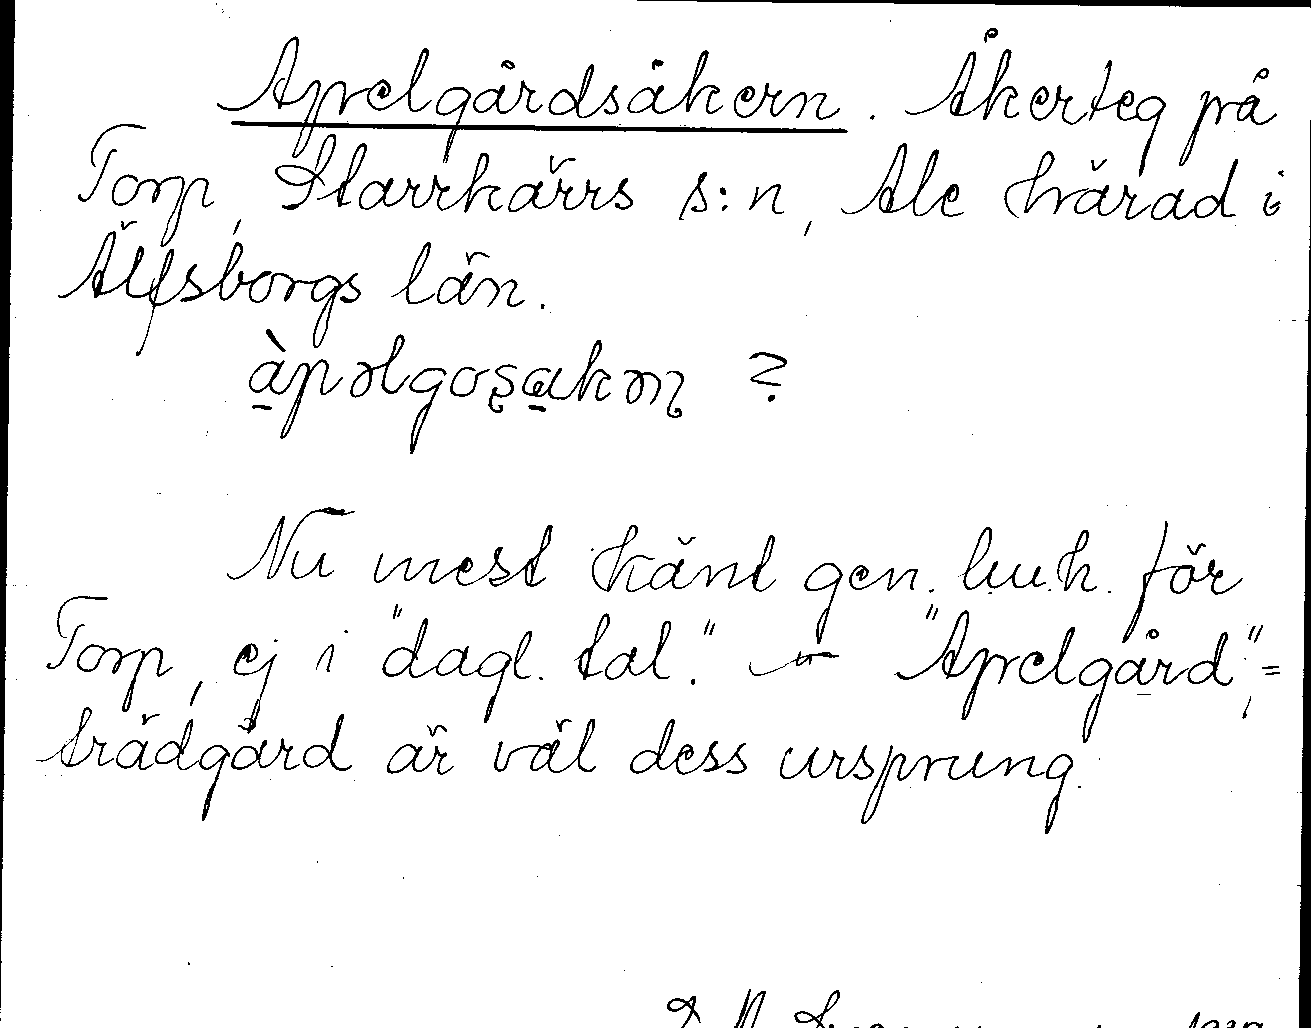 Apelgårdsåkern. Åkerteg på
Torp, Starrkärrs s:n, Ale härad i
Älfsborgs län.
àpəlgoʂɑkəɳ ?
Nu mest känt gen. huh. för
Torp, ej i "dagl. tal." — "Apelgård", =
trädgård är väl dess ursprung.